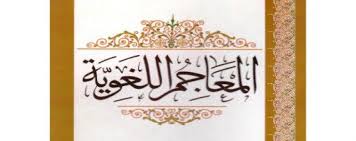 المعاجم اللغويّة